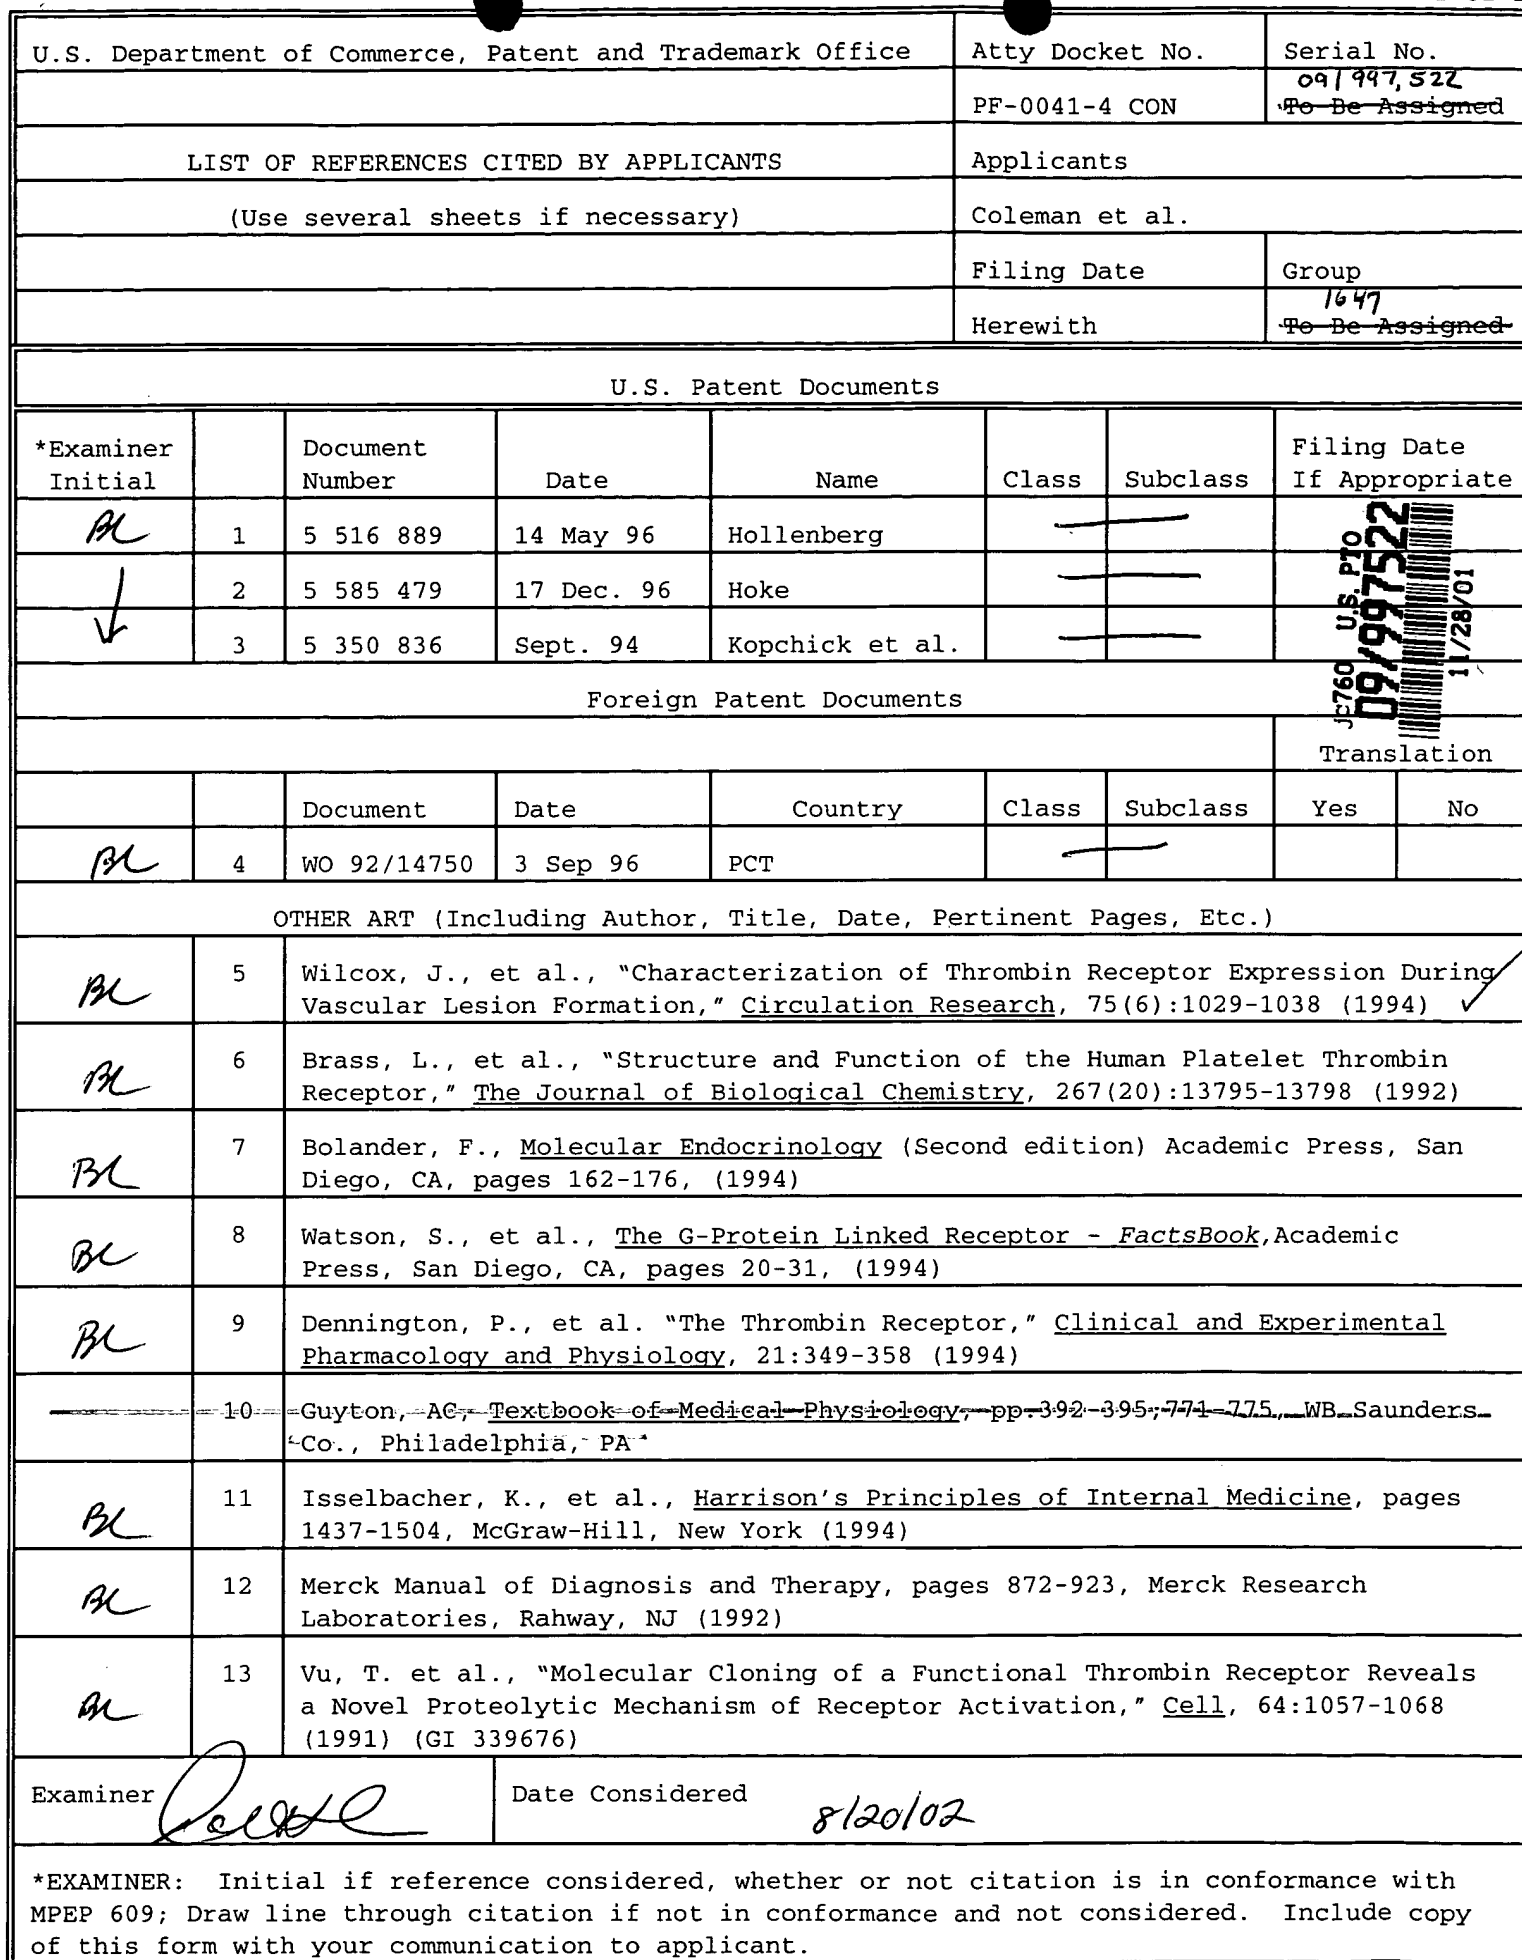 U.S. Department of Commerce, Patent and Trademark Office Atty Docket No. Serial No.
09/997,522
PF-0041-4 CON To Be Assigned
LIST OF REFERENCES CITED BY APPLICANTS Applicants
(Use several sheets if necessary) Coleman et al.
Filing Date Group
1647
Herewith To Be Assigned
U.S. Patent Documents
*Examiner Document Filing Date
Initial Number Date Name Class Subclass If Appropriate
BL 1 5 516 889 14 May 96 Hollenberg
2 5 585 479 17 Dec. 96 Hoke
3 5 350 836 Sept. 94 Kopchick et al.
jc760 U.S. PTO
09/997522
11/28/01
Foreign Patent Documents
Translation
Document Date Country Class Subclass Yes No
BL 4 WO 92/14750 3 Sep 96 PCT
OTHER ART (Including Author, Title, Date, Pertinent Pages, Etc.)
BL 5 Wilcox, J., et al., "Characterization of Thrombin Receptor Expression During
Vascular Lesion Formation," Circulation Research, 75(6):1029-1038 (1994)
BL 6 Brass, L., et al., "Structure and Function of the Human Platelet Thrombin
Receptor," The Journal of Biological Chemistry, 267(20):13795-13798 (1992)
BL 7 Bolander, F., Molecular Endocrinology (Second edition) Academic Press, San
Diego, CA, pages 162-176, (1994)
BL 8 Watson, S., et al., The G-Protein Linked Receptor - FactsBook,Academic
Press, San Diego, CA, pages 20-31, (1994)
BL 9 Dennington, P., et al. "The Thrombin Receptor," Clinical and Experimental
Pharmacology and Physiology, 21:349-358 (1994)
10 Guyton, AC, Textbook of Medical Physiology, pp.392-395;771-775, WB Saunders
Co., Philadelphia, PA
BL 11 Isselbacher, K., et al., Harrison's Principles of Internal Medicine, pages
1437-1504, McGraw-Hill, New York (1994)
BL 12 Merck Manual of Diagnosis and Therapy, pages 872-923, Merck Research
Laboratories, Rahway, NJ (1992)
BL 13 Vu, T. et al., "Molecular Cloning of a Functional Thrombin Receptor Reveals
a Novel Proteolytic Mechanism of Receptor Activation," Cell, 64:1057-1068
(1991) (GI 339676)
Examiner Date Considered 8/20/02
*EXAMINER: Initial if reference considered, whether or not citation is in conformance with
MPEP 609; Draw line through citation if not in conformance and not considered. Include copy
of this form with your communication to applicant.